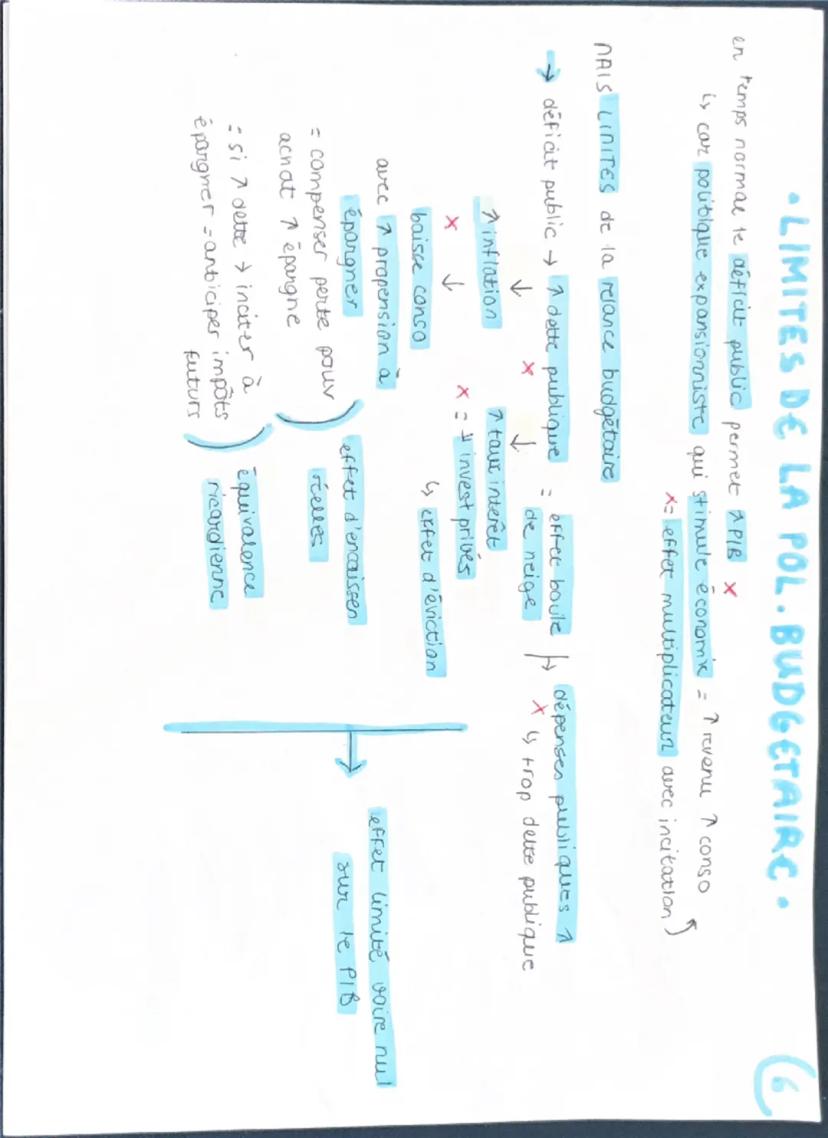 • LIMITES DE LA POL. BUDGETAIRE •
6
en temps normal le déficit public permet ↑ PIB x
↳ car politique expansionniste qui stimule économie = ↑ revenu ↑ conso
x = effet multiplicateur avec incitation
MAIS LIMITES de la relance budgétaire
→ déficit public → ↑ dette publique = effet boule de neige
↳ dépenses publiques ↑
x ↳ trop dette publique
↓ x ↓
↑ inflation
↑ taux intérêt
x ↓
x = ↓ invest privés
baisse conso
↳ effet d'éviction
avec ↑ propension à
épargner
= compenser perte pouv
achat ↑ épargne
effet d'encaisses
réelles
= si ↑ dette → inciter à
épargner = anticiper impôts
futurs
équivalence
ricardienne
→ effet limité voire nul
sur le PIB